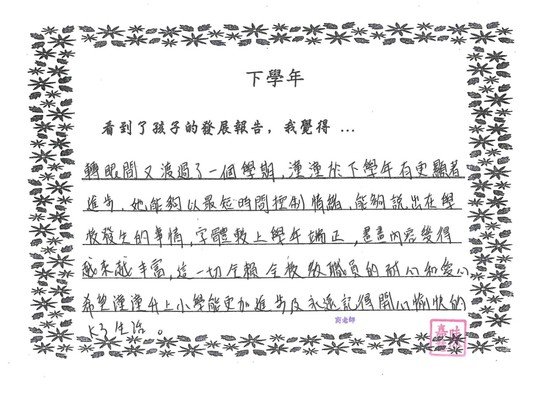 下學年
看到了孩子的發展報告，我覺得 ...
轉眼間又渡過了一個學期，瀅瀅於下學年有更顯著
進步，她能夠以最短時間控制情緒，能夠說出在學
校發生的事情，字體較上學年端正，畫畫內容變得
越來越豐富，這一切全賴全校教職員的耐心和愛心，
希望瀅瀅升上小學能更加進步及永遠記得開心愉快的
K3生活。